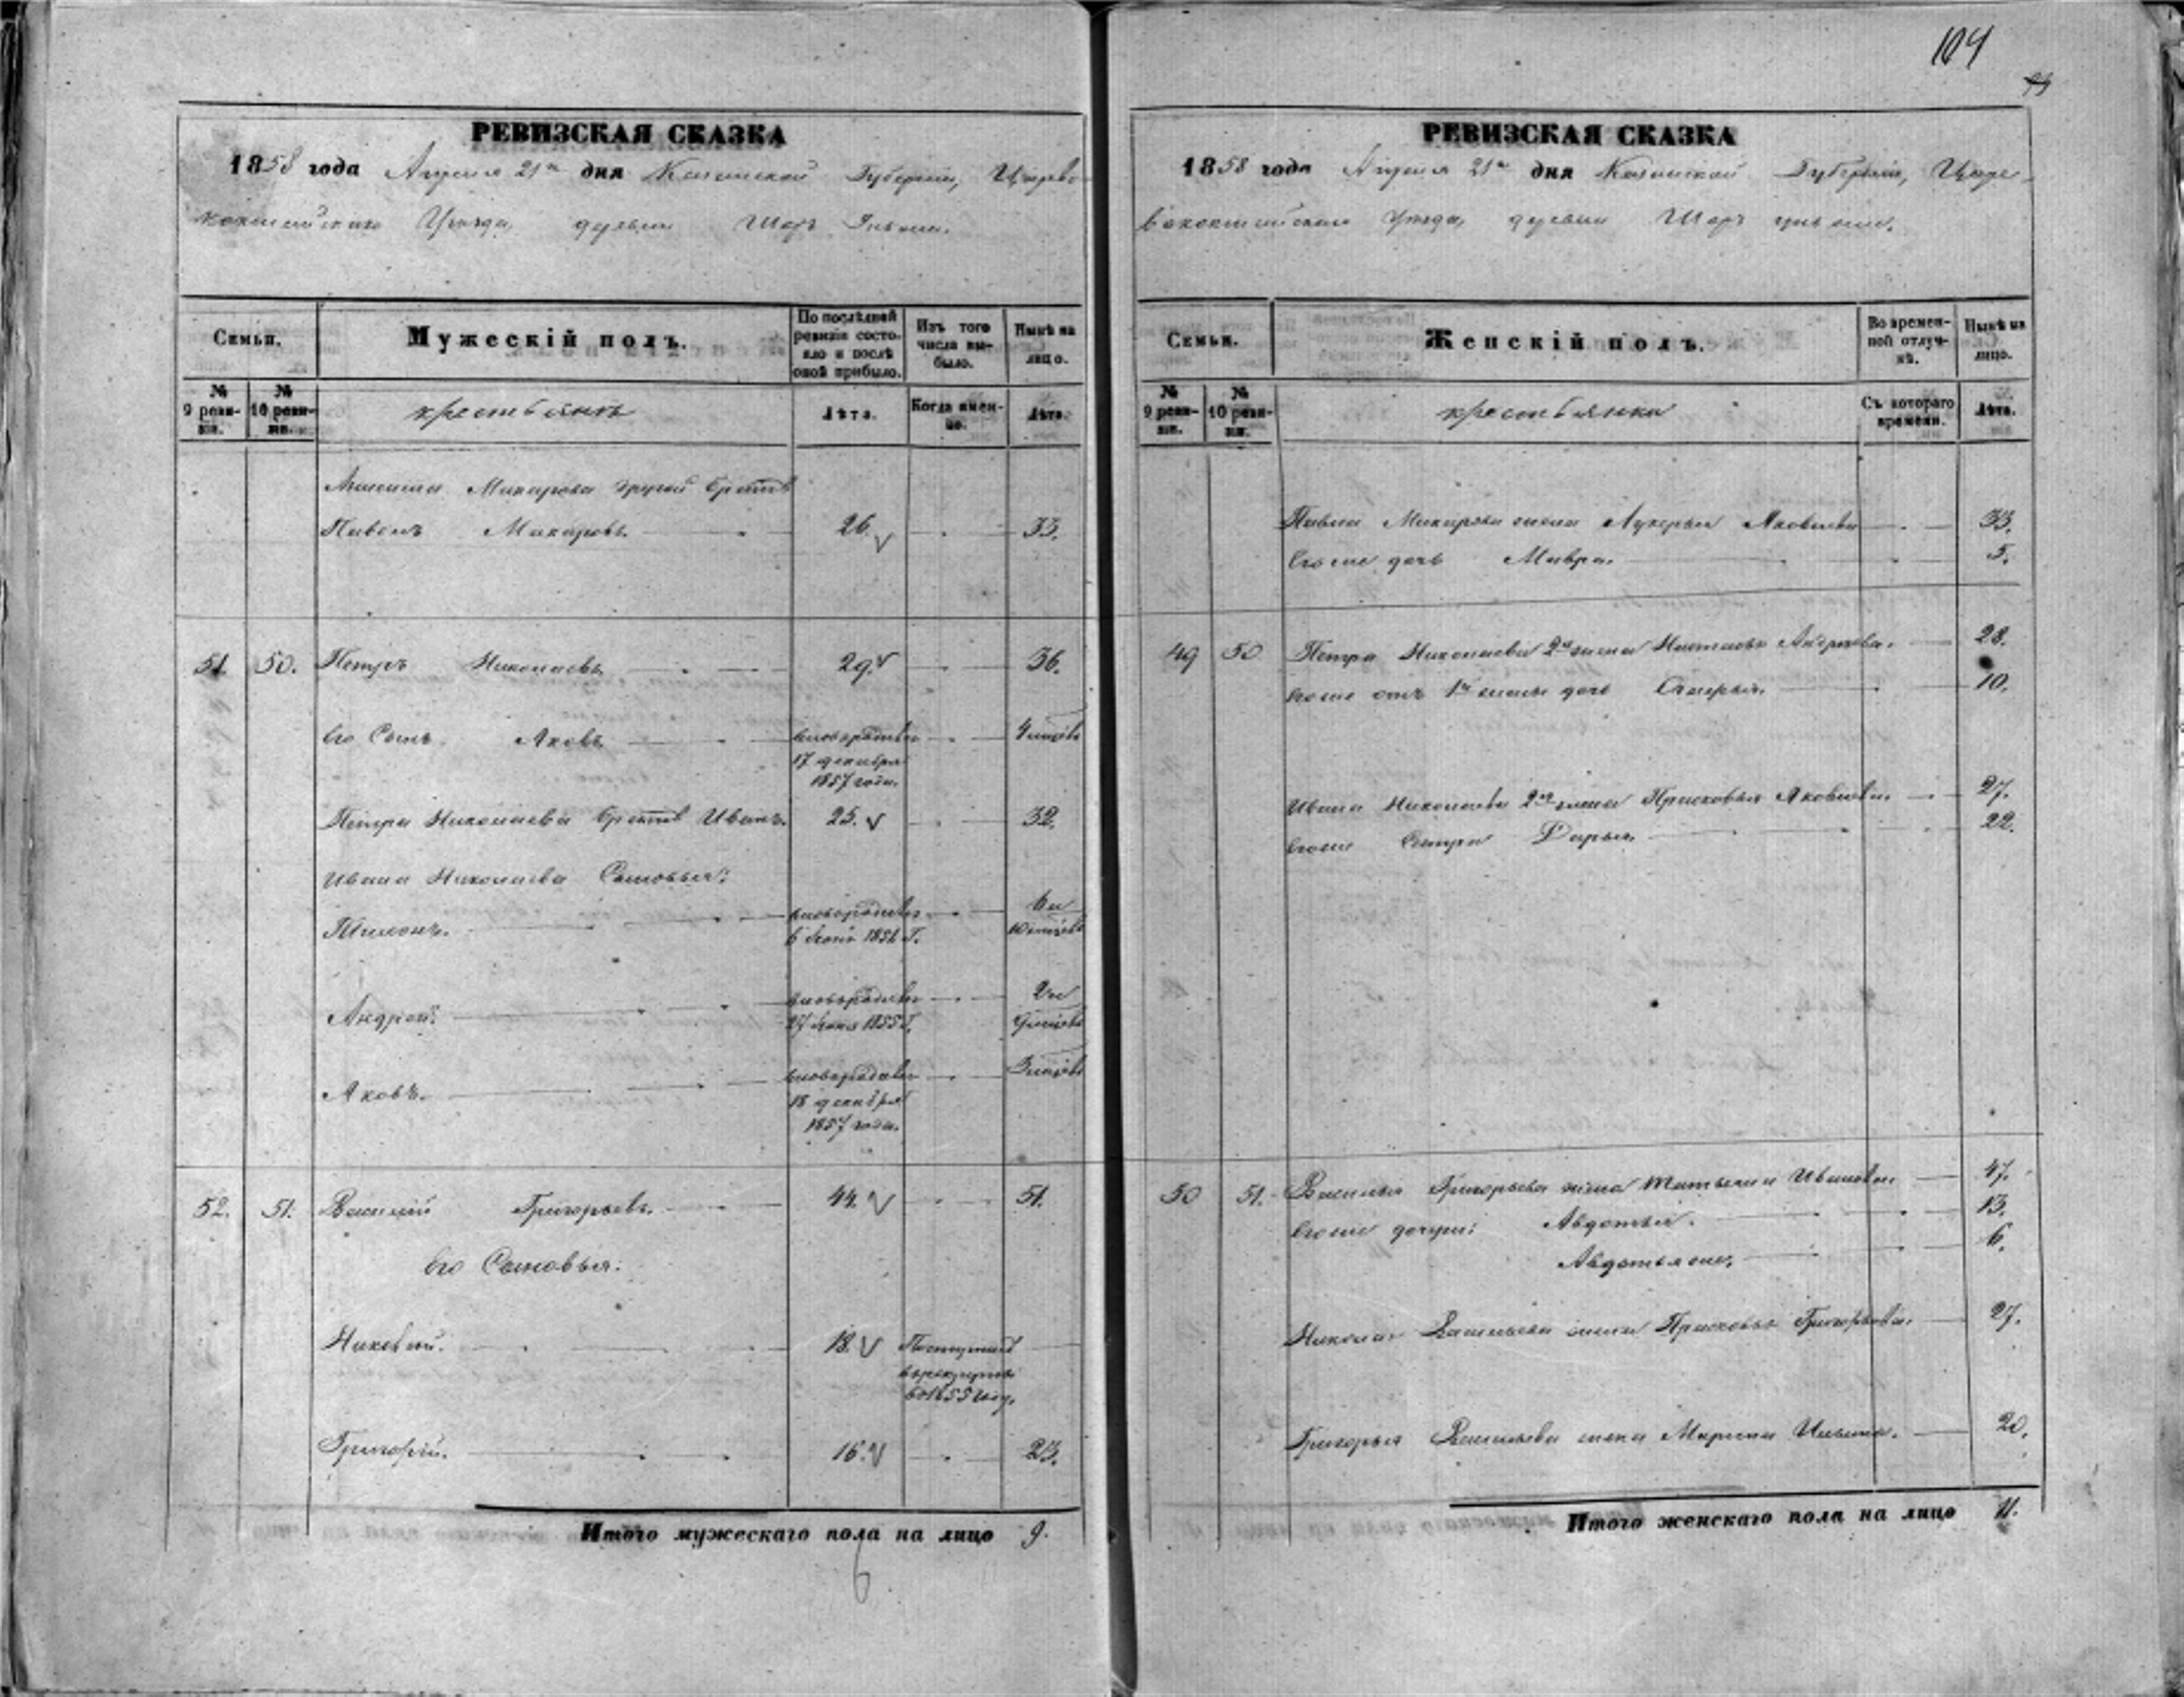 104
РЕВИЗСКАЯ СКАЗКА
1858 года Апреля 21го дня Казанской Губернии, Царево
кокшайскаго Уѣзда, деревни Шоръ
Семьи.
Мужескій полъ.
По послѣдней ревизіи состояло и послѣ оной прибыло.
Изъ того числа выбыло.
Нынѣ на лицо.
№ 9 ревизіи.
№ 10 ревизіи.
крестьянъ
Лѣта.
Когда именно.
Лѣта.
Макарова другой братъ
Павелъ Макаровъ. 26. 33.
51. 50. Петръ Николаевъ. 29. 36.
его Сынъ Яковъ. вновьрожден 4 мѣсяц
17 декабря
1857 года.
Петра Николаева братъ Иванъ. 25. 32.
Ивана Николаева Сыновья:
вновьрожден 6 и
10 мѣсяц
Андрей. вновьрожден 2 и
1855 Г. мѣсяц
Яковъ. вновьрожден 3 мѣсяц
18 декабря
1857 года.
52. 51. Василий Григорьевъ. 44. 51.
его Сыновья:
18. Поступилъ
врекруты
в 1855 году.
Григорій. 16. 23.
Итого мужескаго пола на лицо 9.
6
РЕВИЗСКАЯ СКАЗКА
1858 года Апреля 21го дня Казанской Губерніи, Царе-
вококшайскаго Уѣзда, деревни Шоръ
Семьи.
Женскій полъ.
Во временной отлучкѣ.
Нынѣ на лицо.
№ 9 ревизіи.
№ 10 ревизіи.
крестьянки
Съ котораго времени.
Лѣта.
Павла Макарова жена Лукерья Яковлева 33.
его же дочь Мавра. 5.
49 50 Петра Николаева 2я жена Наталья Андреева. 28.
его же отъ 1й жены дочь 10.
Ивана Николаева 2я жена Прасковья Яковлева. 27.
его же Сестра Дарья. 22.
50 51. Василья Григорьева жена Татьяна Иванова 47.
его же дочери: Авдотья. 13.
Авдотья же. 6.
Николая Васильева жена Прасковья Григорьева. 27.
Григорья Васильева жена Марина Ильина. 20.
Итого женскаго пола на лицо 11.